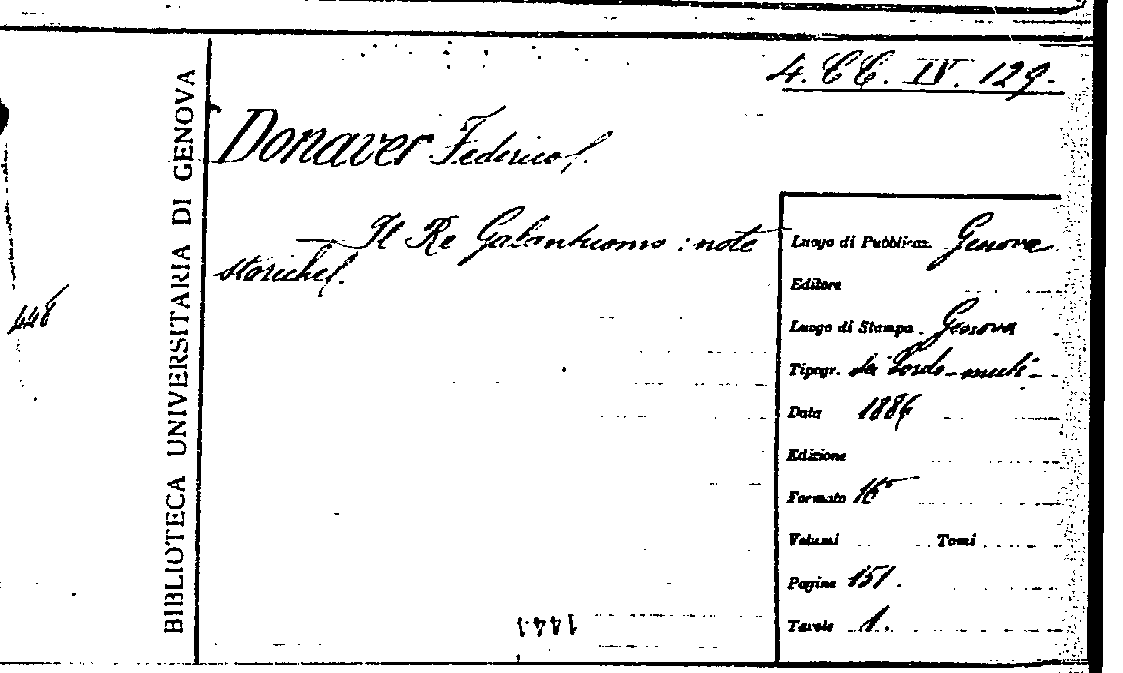 4. CC. IV. 129.
BIBLIOTECA UNIVERSITARIA DI GENOVA
Donaver Federico.
— Il Re Galantuomo : note
storiche.
448
Luogo di Pubblicaz. Genova
Editore
Luogo di Stampa Genova
Tipogr. dei Sordo-muti
Data 1886
Edizione
Formato 16°
Volumi Tomi
Pagine 151.
Tavole 1.